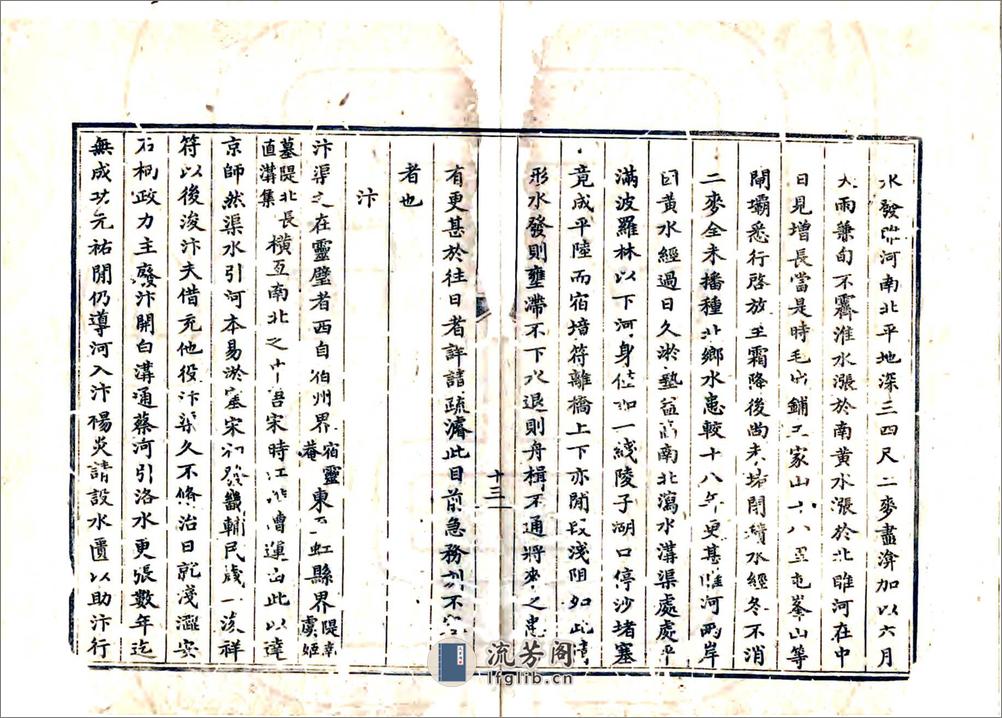 水發睢河南北平地深三四尺二麥盡渰加以六月
大雨兼旬不霽淮水漲於南黃水漲於北睢河在中
日見增長當是時毛城鋪王家山十八里屯峯山等
閘壩悉行啓放至霜降後尚未堵閉積水經冬不消
二麥全未播種北鄉水患較十八年更甚睢河兩岸
因黃水經過日久淤墊益高南北瀉水溝渠處處平
滿波羅林以下河身僅如一綫陵子湖口停沙堵塞
竟成平陸而宿境符離橋上下亦閒段淺阻如此情
形水發則壅滯不下水退則舟楫不通將來之患
有更甚於往日者詳請疏濬此目前急務刻不容
者也
十三
汴
汴渠之在靈璧者西自宿州界宿靈菴東至虹縣界隄幸虞姬
墓隄北長直溝集橫亙南北之中唐宋時江淮漕運由此以達
京師然渠水引河本易淤塞宋初發畿輔民歲一浚祥
符以後浚汴夫借充他役汴渠久不脩治日就淺澀安
石柄政力主廢汴開白溝通蔡河引洛水更張數年迄
無成功元祐閒仍導河入汴楊炎請設水匱以助汴行
流芳阁
lfglib.cn